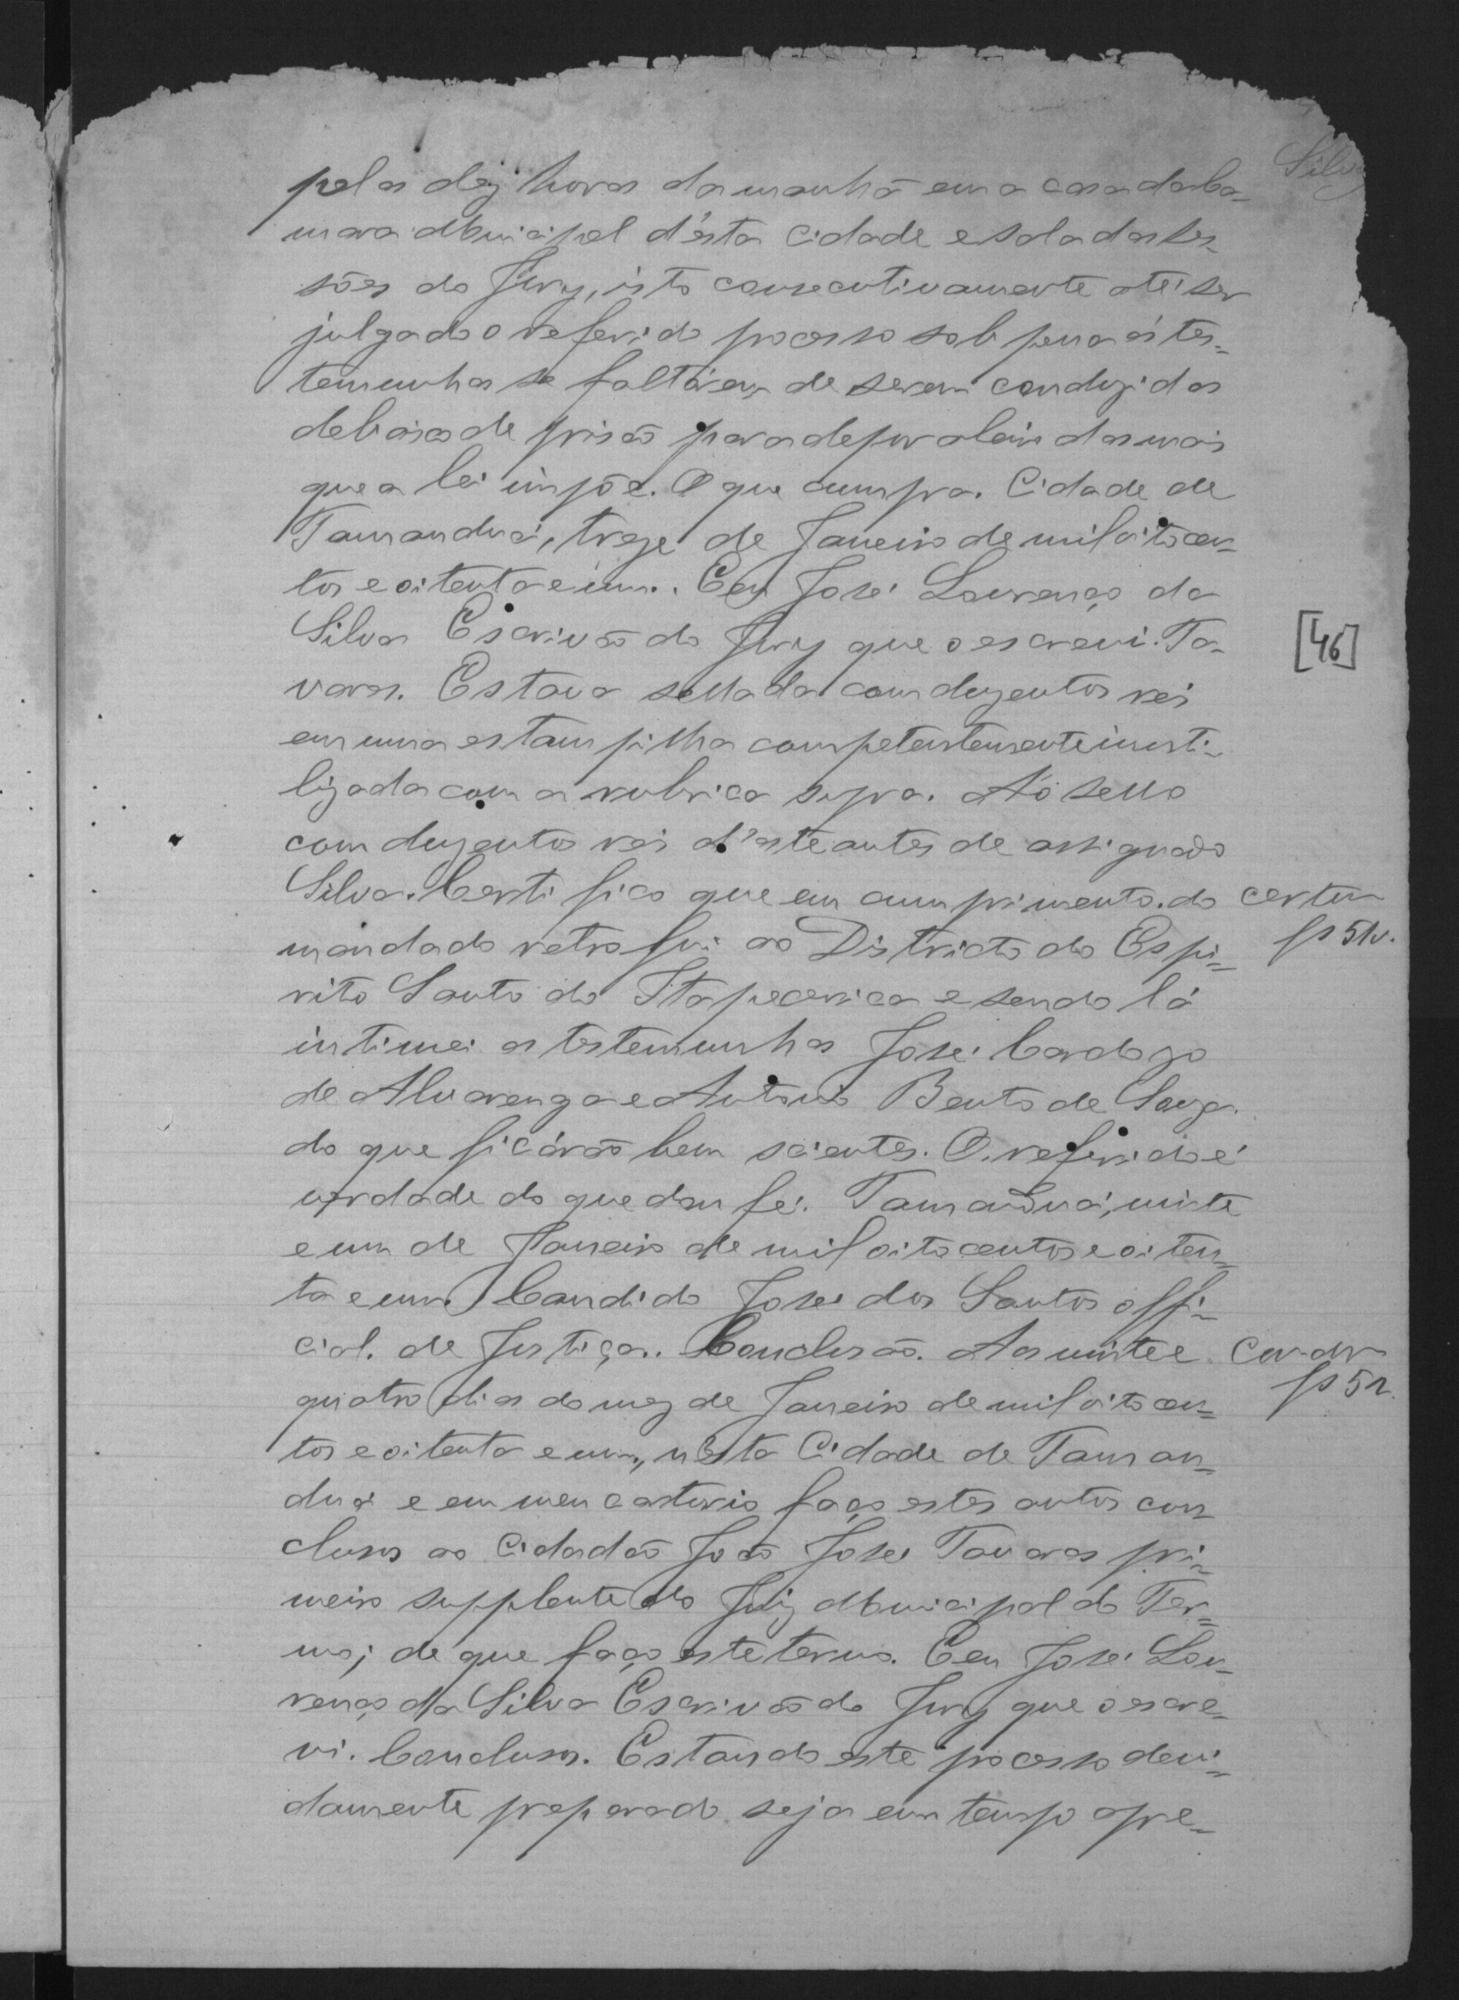 Silva
pelas dez horas da manhã em a casa da Ca-
mara Municipal d'ésta Cidade e sala das Ses-
sões do Jury, isto consecutivamente até ser
julgado o referido processo sob pena ás tes-
temunhas se faltárem de serem conduzidas
debaixo de prisão para depor alem das mais
que a lei impõe. O que cumpra. Cidade de
Tamanduá, treze de Janeiro de mil oitocen-
tos e oitenta e um. Eeu José Lourenço da
Silva Escrivão do Jury que o escrevi. Ta-
vares. Estava sellada com duzentos reis
[46]
em uma estampilha competentemente inuti-
lizada com a rubrica supra. Ao sello
com duzentos reis d'este antes de assignado
Silva. Certifico que em cumprimento do
certam
fs 51v.
mandado retro fui ao Districto do Espi-
rito Santo do Itapecerica e sendo lá
intimei as testemunhas José Cardozo
de Alvarenga e Antonio Bento de Souza.
do que ficárão bem scientes. O referido é
verdade do que dou fé. Tamanduá, vinte
e um de Janeiro de mil oito centos e oiten-
ta e um. Candido José dos Santos offi-
cial. de Justiça. Conclusão. Aos vinte e
fs 52.
quatro dias do mez de Janeiro de mil oito cen-
tos e oitenta e um, n'ésta Cidade de Taman-
duá e em meu cartorio faço estes autos con
clusos ao Cidadão João José Tavares pri-
meiro supplente do Juiz Municipal do Ter-
mo; de que faço este termo. Eeu José Lou-
renço da Silva Escrivão do Jury que o escre-
vi. Conclusos. Estando este processo devi-
damente preparado seja em tempo apre-